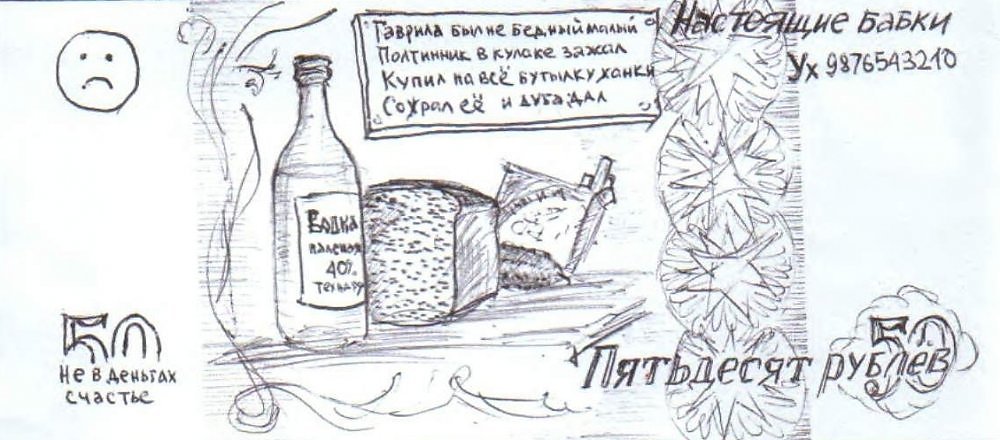 Гаврила был не бедный малый
Полтинник в кулаке зажал
Купил на всё бутылку ханки
Сожрал её и дуба дал
Настоящие бабки
Ух 9876543210
Водка
паленая
40%
50
Не в деньгах
счастье
Пятьдесят рублев
50